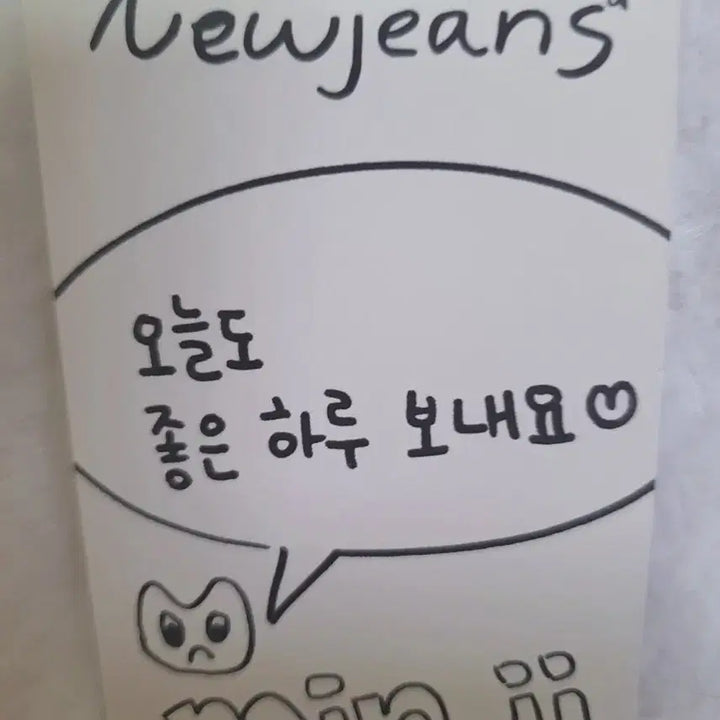 Newjeans
오늘도
좋은 하루 보내요♡
min ji